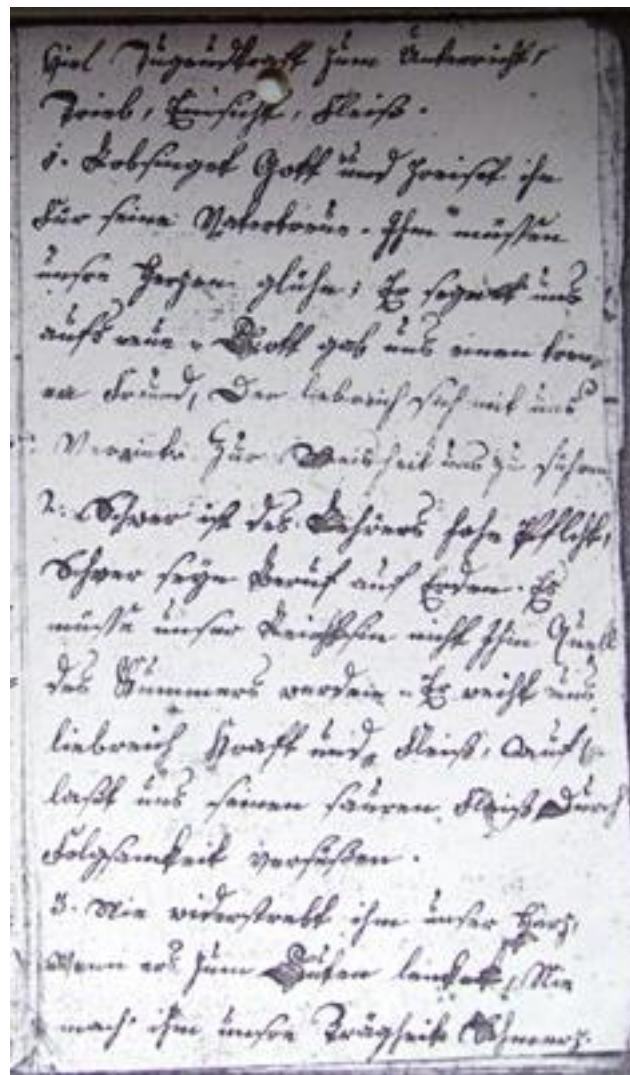 Viel Jugendkraft zum Unterricht,
Trieb, Einsicht, Fleiß.
1. Lobsinget Gott und preist ihn
Für seine Vatertreue. Ihm müssen
unsre Herzen glühn; Er segnet uns
aufs neue. Gott gab uns einen treu-
en Freund, Der liebreich sich mit uns
Vereint Zur Weisheit uns zu führen
2. Schwer ist des Lehrers hohe Pflicht,
Schwer seyn Beruf auf Erden. Es
müsse unser Leichtsin nicht Ihm Quell
des Kummers werden. Er weiht uns
liebreich Kraft und Fleiß, Auf
laßt uns seinen sauren Fleiß Durch
Folgsamkeit versüßen.
3. Nie widerstrebt ihm unser Herz,
Wenn ers zum Guten lenket, Nie
mach ihm unsre Trägheit Schmerz.